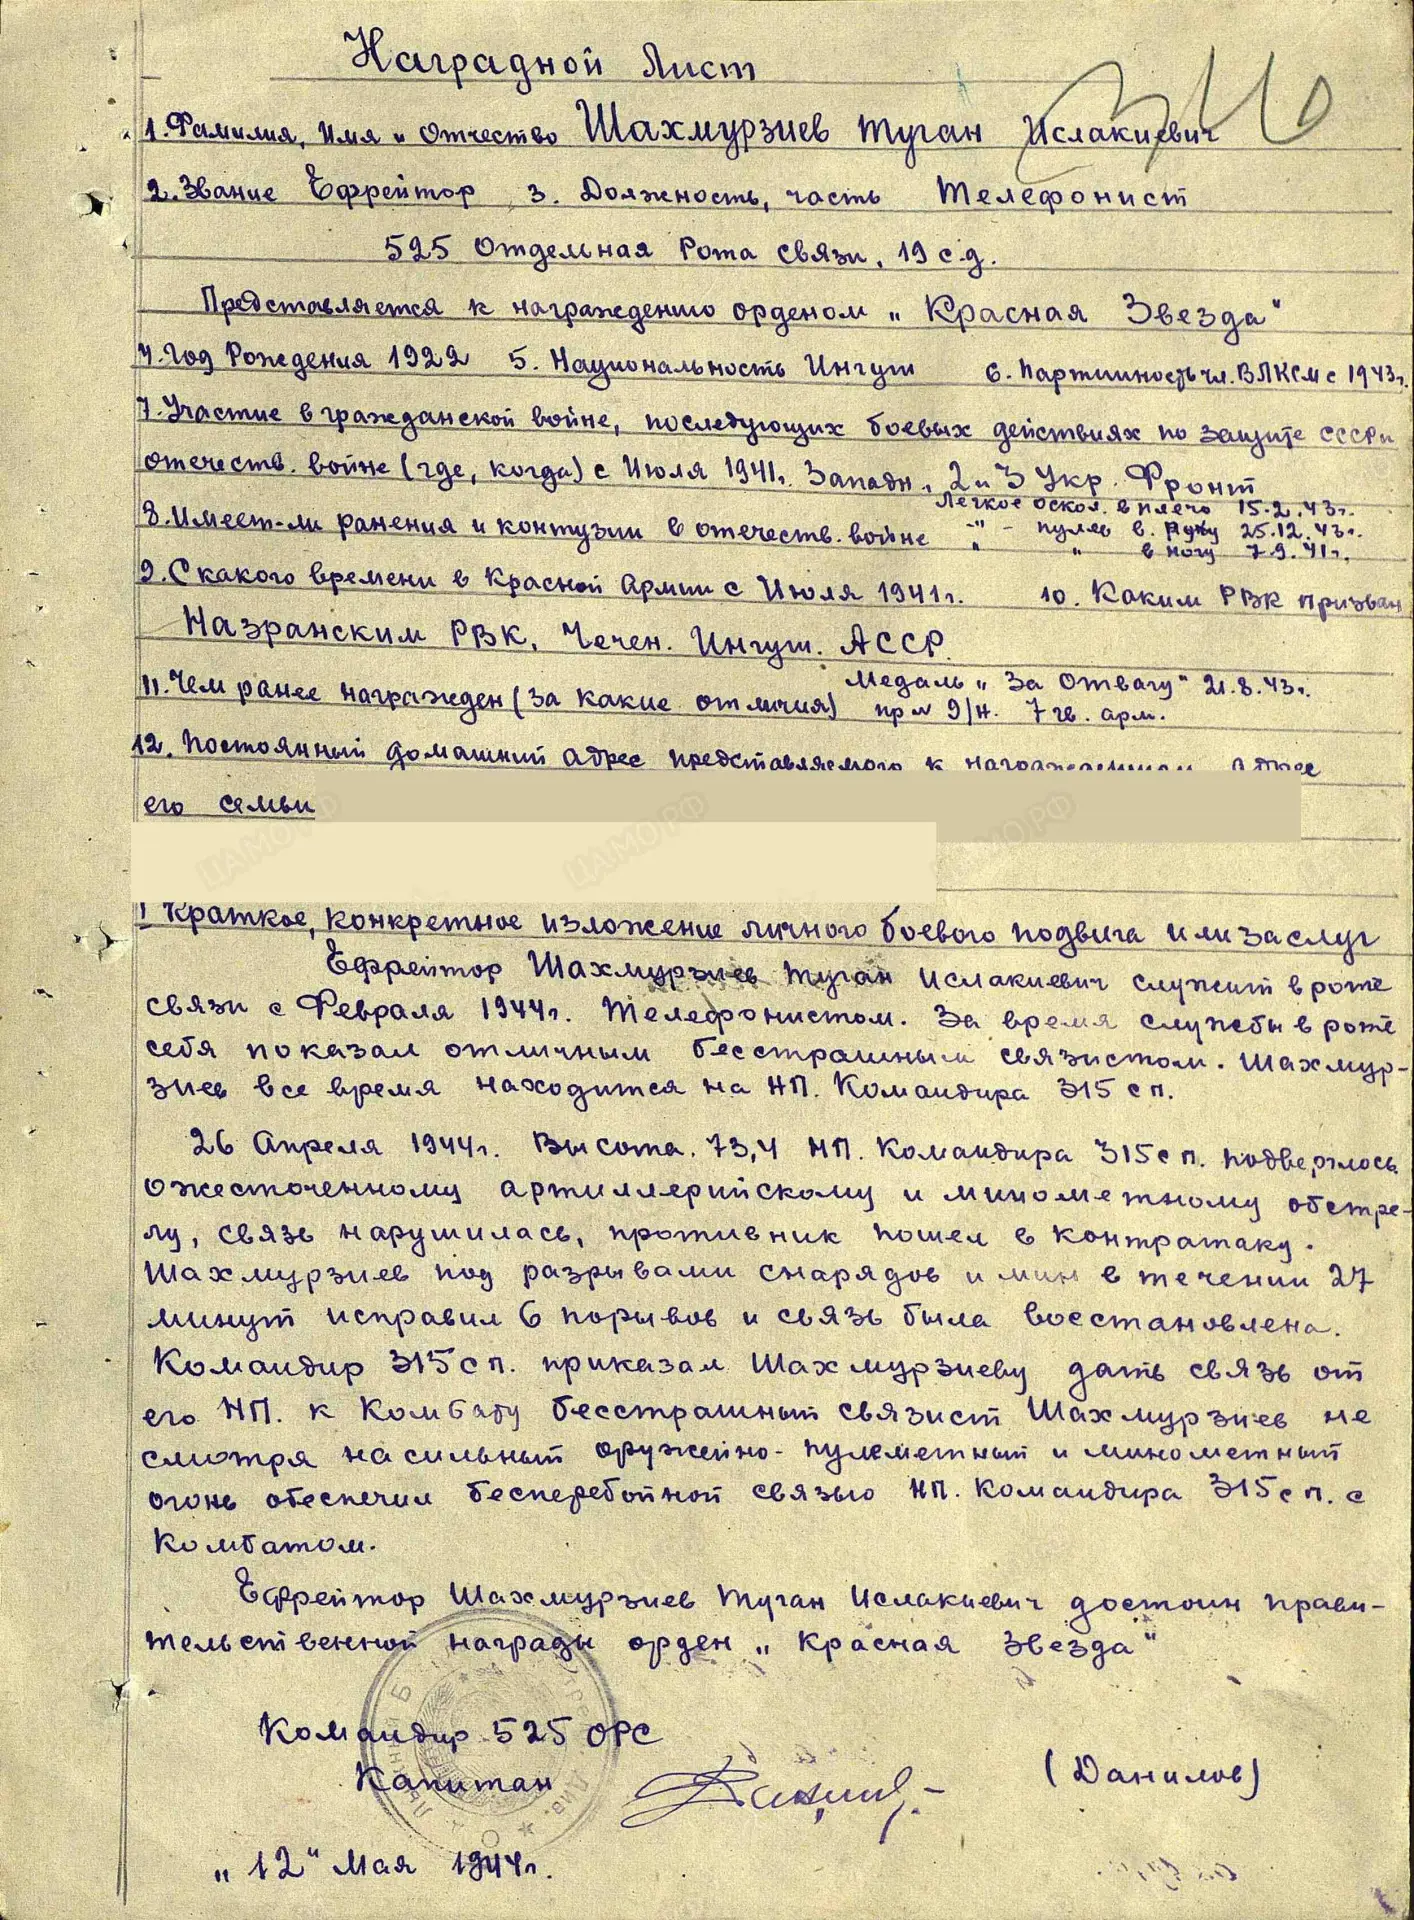 Наградной Лист
1. Фамилия, Имя и Отчество Шахмурзиев Туган Ислакиевич
2. Звание Ефрейтор 3. Должность, часть Телефонист
525 Отдельная Рота связи, 19 с.д.
Представляется к награждению орденом „Красная Звезда"
4. Год Рождения 1922 5. Национальность Ингуш 6. Партийность чл. ВЛКСМ с 1943г.
7. Участие в гражданской войне, последующих боевых действиях по защите СССР и
отечеств. войне (где, когда) с Июля 1941г. Западн., 2 и 3 Укр. Фронт
Легкое оскол. в плечо 15.2.43г.
8. Имеет-ли ранения и контузии в отечеств. войне -"- пулев в. руку 25.12.43г.
" " в ногу 7.9.41г.
9. С какого времени в Красной Армии с Июля 1941г. 10. Каким РВК призван
Назранским РВК, Чечен. Ингуш. АССР.
11. Чем ранее награжден (за какие отличия) Медаль „За Отвагу" 21.8.43г.
пр № 9/н. 7 гв. арм.
12. Постоянный домашний адрес представляемого к награждению и адрес
его семьи
ЦАМО.РФ ЦАМО.РФ ЦАМО.РФ
I Краткое, конкретное изложение личного боевого подвига или заслуг
Ефрейтор Шахмурзиев Туган Ислакиевич служит в роте
связи с Февраля 1944г. Телефонистом. За время службы в роте
себя показал отличным бесстрашным связистом. Шахмур-
зиев все время находится на НП. Командира 315 сп.
26 Апреля 1944г. Высота. 73,4 НП. Командира 315 сп. подверглось
ожесточенному артиллерийскому и минометному обстре-
лу, связь нарушилась, противник пошел в контратаку.
Шахмурзиев под разрывами снарядов и мин в течении 27
минут исправил 6 порывов и связь была восстановлена.
Командир 315 сп. приказал Шахмурзиеву дать связь от
его НП. к Комбату бесстрашный связист Шахмурзиев не
смотря на сильный оружейно-пулеметный и минометный
огонь обеспечил бесперебойной связью НП. Командира 315 сп. с
Комбатом.
Ефрейтор Шахмурзиев Туган Ислакиевич достоин прави-
тельственной награды орден „Красная Звезда"
Командир 525 ОРС
Капитан (Данилов)
„12" Мая 1944г.